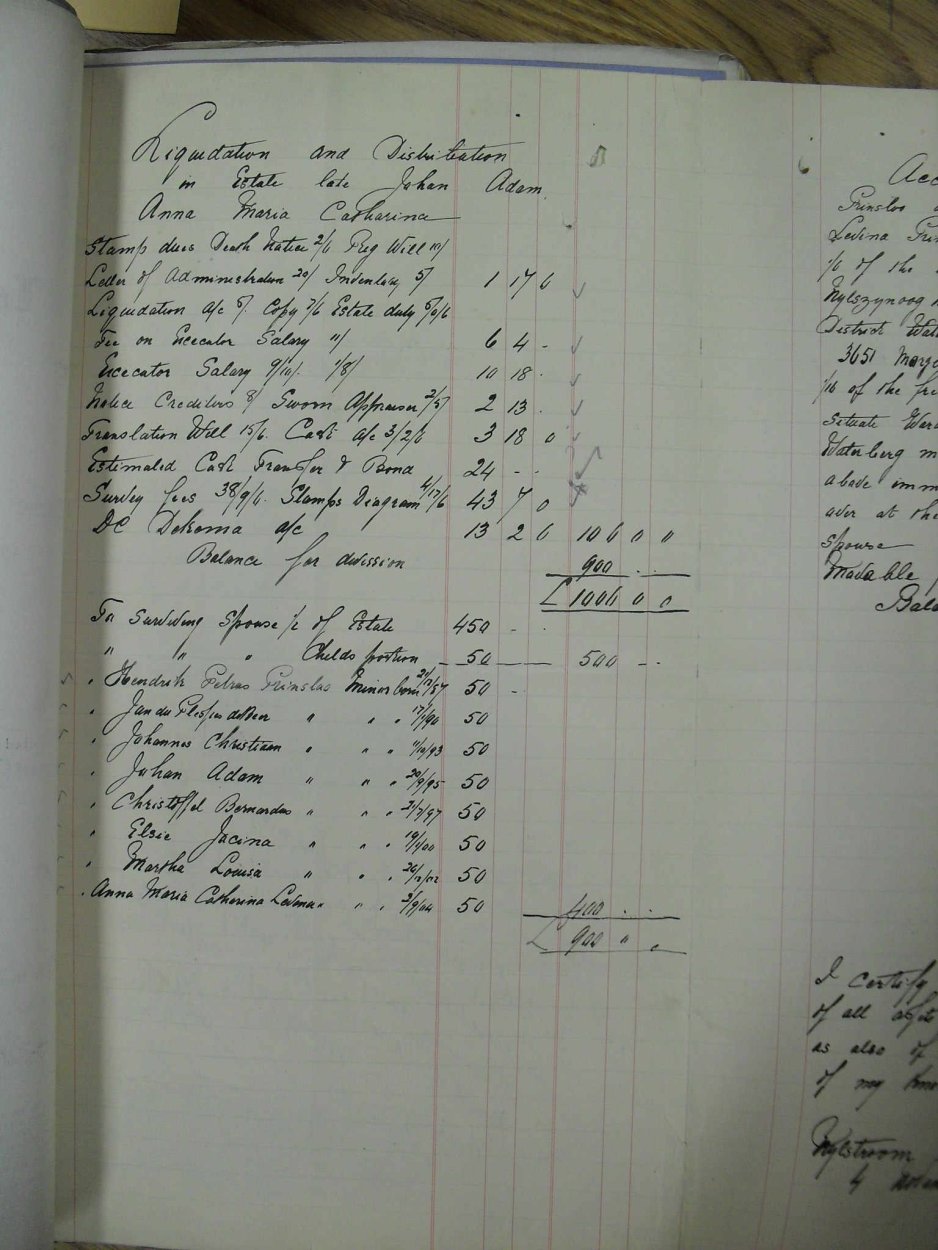 Liquidation and Distribution
in Estate late Johan Adam
Anna Maria Catharina
Stamp dues Death Notice 2/6 Reg Will 10/
Letter of Administration 20/ Indentary 5/ 1 17 6
Liquidation a/c 5/. Copy 7/6 Estate duty
Fee on Execator Salary 11/ 6 4 -
Execator Salary 9/10/. 1/8/ 10 18 .
Notice Creditors 8/ Sworn Appraiser 2/5/ 2 13 .
Translation Will 15/6. Cost a/c 3/2/6 3 18 0
Estimated Cost Transfer & Bond 24 - -
Survey fees 38/9/6. Stamps Diagram 4/17/6 43 7 0
DC Dekema a/c 13 2 6 106 0 0
Balance for division 900 . . .
£ 1006 0 0
To Surviving Spouse ½ of Estate 450 - .
" " " Childs portion 50 500 - .
" Hendrik Petrus Prinsloo Minor born 50 -
" " " " 50
" Johannes Christiaan " " " 11/10/93 50
" Johan Adam " " " 20/9/95 50
" Christoffel Bernardus " " " 21/7/97 50
" Elsie Jacina " " " 50
" Martha Louisa " " " 26/12/02 50
" Anna Maria Catharina Levina " " " 2/9/04 50 400 . . .
£ 900 " "
Acc
Prinsloo
Levina Prin
½ of the
Nylszynoog
District Wat
3651 Morg
1/16 of the fre
Situate Ward
Waterberg m
above imm
over at the
Spouse
Movable
Bala
I certify
of all
as also of
of my know
Nylstroom
4